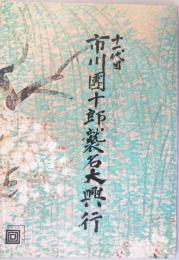 十一代目
市川團十郎襲名大興行